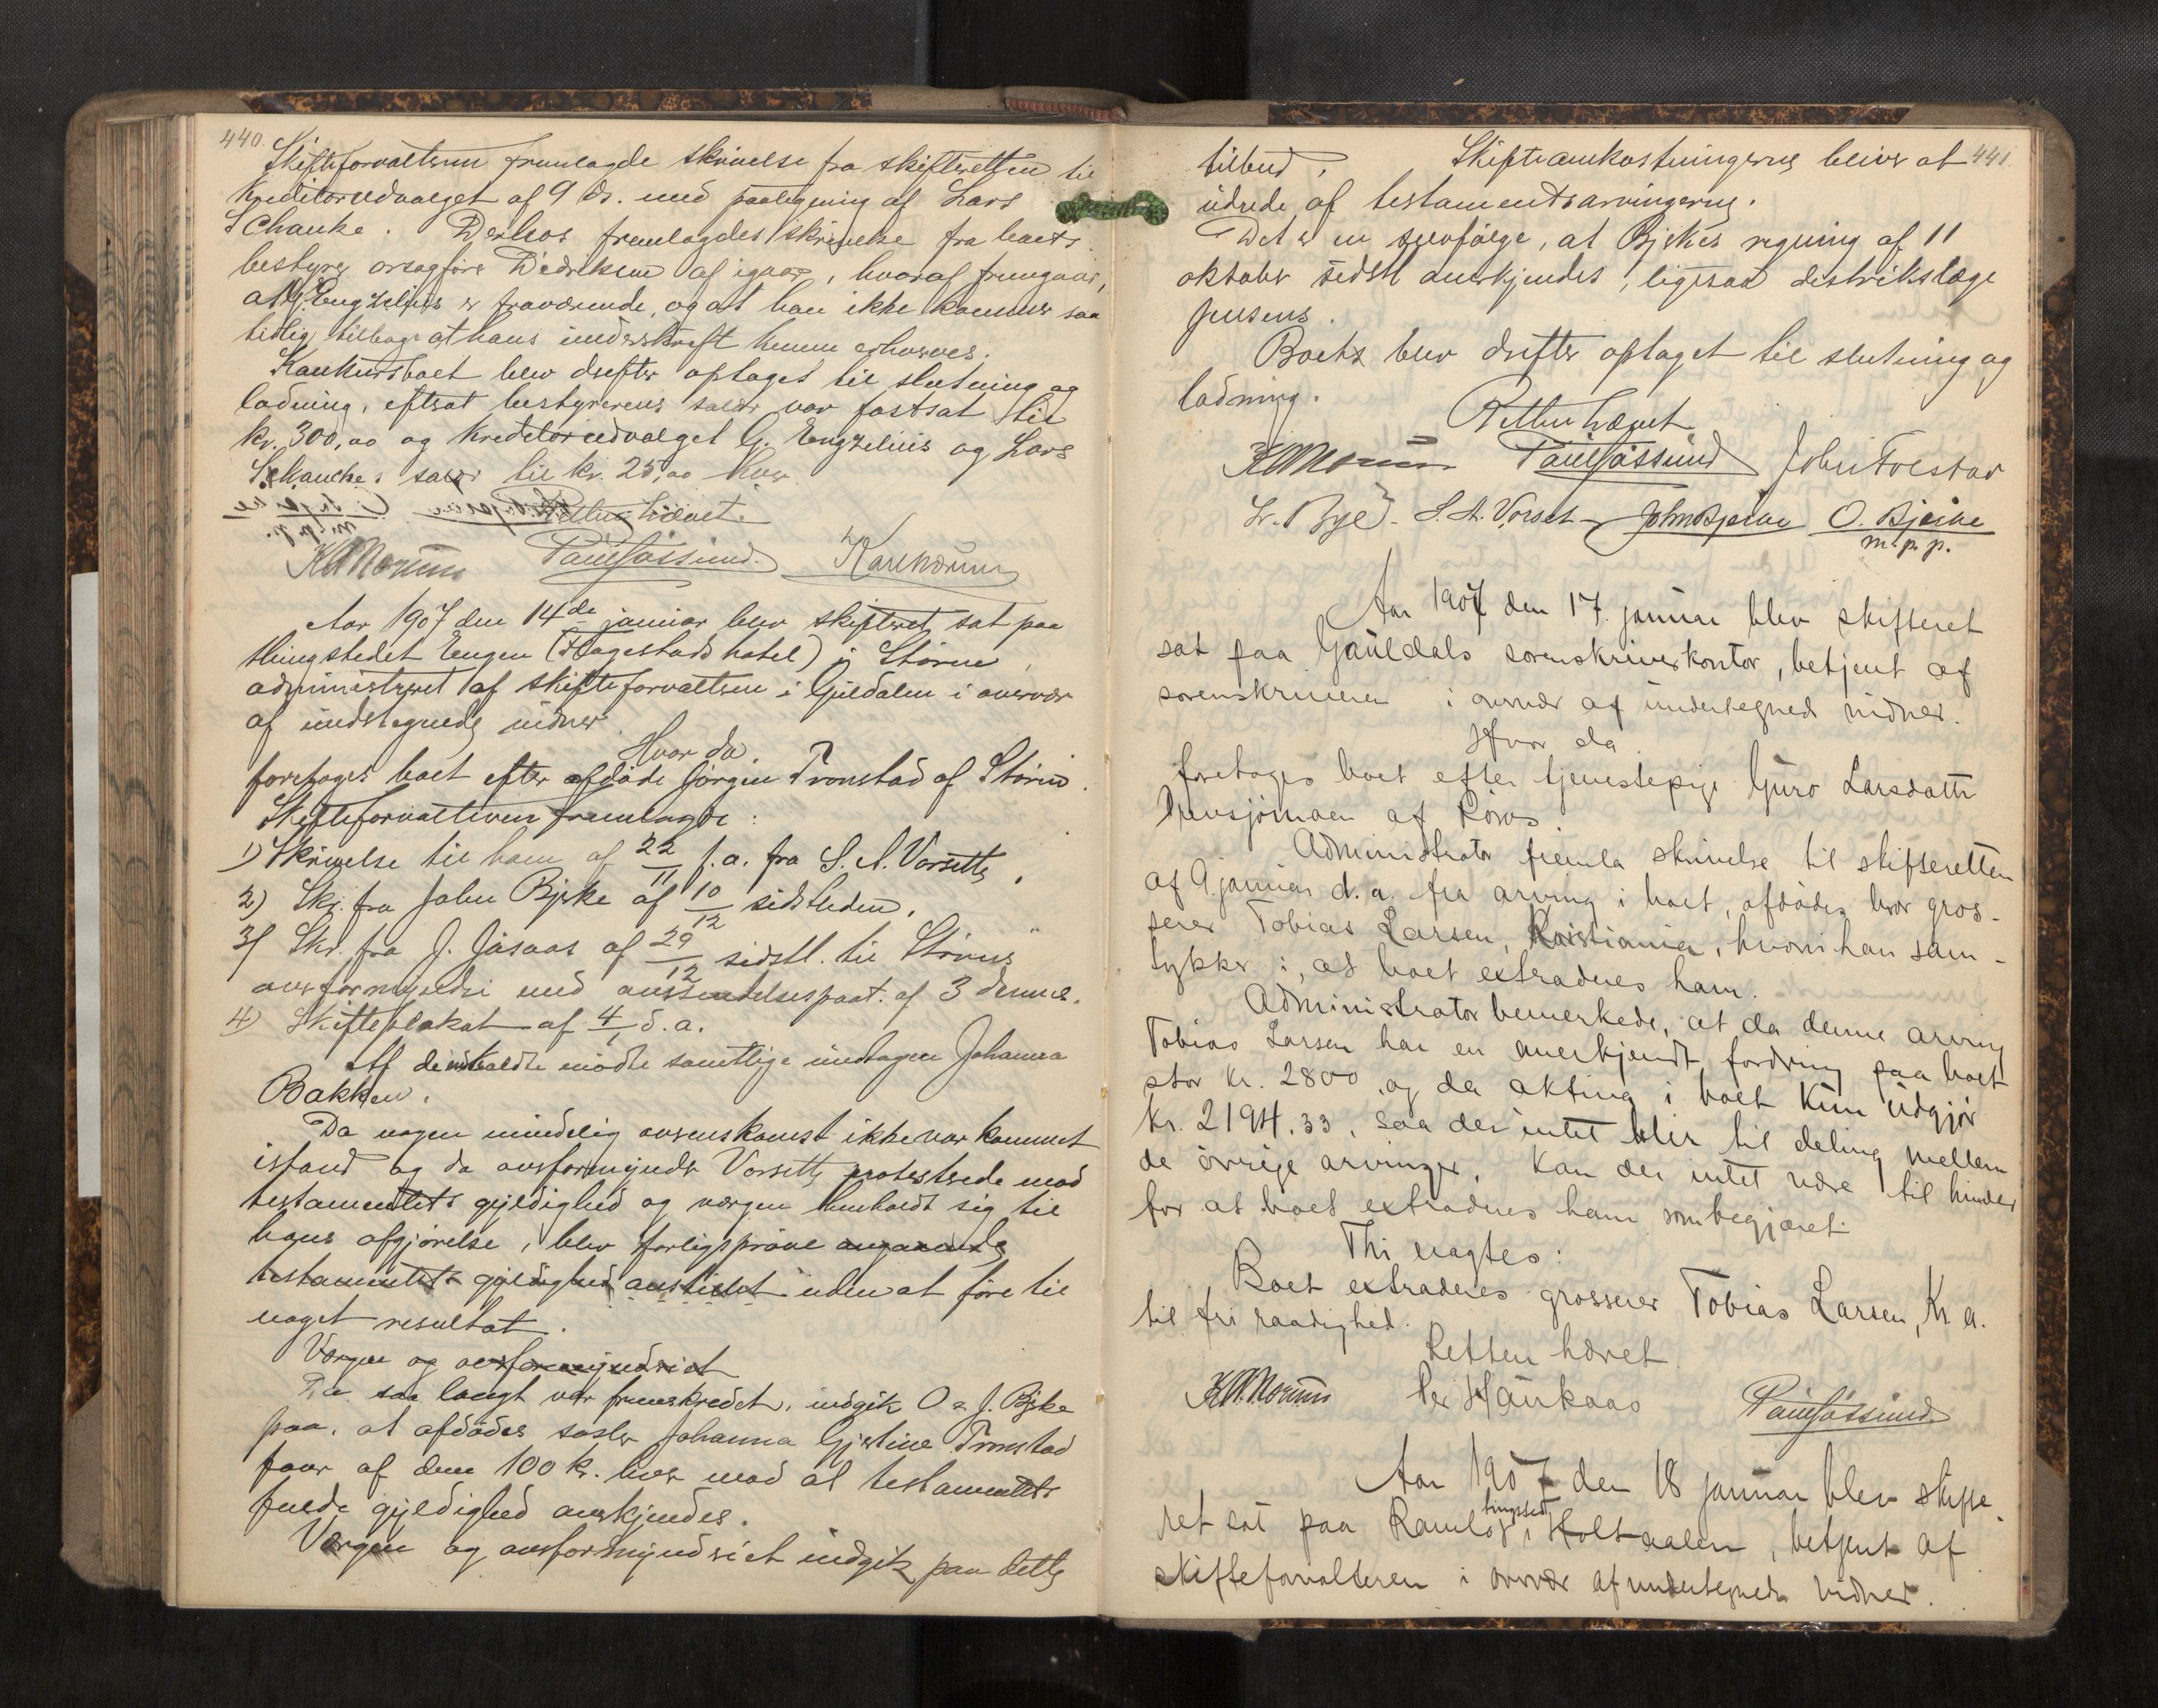 440.
Skifteforvalteren fremlagde skrivelse fra skifteretten til
kreditorudvalget af 9 ds. med paategning af Lars
Schanke. Derhos fremlagdes skrivelse fra boets
bestyrer orsagfører Dedriksen af igaar, hvoraf fremgaar,
at G. Engzelius er fraværende, og at han ikke kommer saa
tidlig tilbage at hans underskrift kunne erhverves.
Konkursboet blev derefter optaget til slutning og
lodning, efterat bestyrerens salær var fastsat til
kr. 300,00 og kreditorudvalget G. Engzelius og Lars
Schanckes salær til kr. 25,00 hver.
Retten hævet.
K A Norum Paul Gaasund. Karl Norum
Aar 1907 den 14de januar blev skifteret sat paa
thingstedet Engen (Hagestads hotel) i Støren,
administreret af skifteforvalteren i Guldalen i overvær
af undertegnede vidner.
Hvor da
foretoges boet efter afdøde Jørgen Tronstad af Støren.
Skifteforvalteren fremlagde:
1) Skrivelse til ham af 22/11 f.a. fra S. A. Vorseth.
2) Skr. fra John Bjerke af 10/12 sidstleden.
3) Skr. fra J. Jaasaas af 29/12 sidstl. til Størens
overformynderi med oversendelsespaat. af 3 dennes.
4) Skifteplakat af 4/1 d.a.
Af de indkaldte mødte samtlige undtagen Johanna
Bakken.
Da nogen mindelig overenskomst ikke var kommet
istand og da overformynder Vorseth protesterede mod
testamentets gyldighed og værgen henholdt sig til
hans afgjørelse, blev forligsprøve angaaende
testamentets gyldighed anstillet uden at føre til
noget resultat.
Værgen og overformynderiet
Da saa langt var fremskredet, indgik O & J. Bjerke
paa, at afdødes søster Johanna Gjertine Tronstad
faar af dem 100 kr. hver mod at testamentets
fulde gyldighed anerkjendes.
Værgen og overformynderiet indgik paa dette
441.
tilbud. Skifteomkostningerne bliver at
udrede af testamentsarvingerne.
Det er en selvfølge, at Bjerkes regning af 11
oktober sidstl anerkjendes, ligesaa distriktslæge
Jensens.
Boets blev derefter optaget til slutning og
lodning.
Retten hævet
K A Norum Paul Gaasund John Folstad
Lr. Rye S. A. Vorset John Bjerke O. Bjerke
m.p.p.
Aar 1907 den 17. januar blev skifteret
sat paa Gauldals sorenskriverkontor, betjent af
sorenskriveren i overvær af undertegnede vidner.
Hvor da
foretoges boet efter tjenestepige Guro Larsdatter
Drevsjømoen af Røros.
Administrator fremla skrivelse til skifteretten
af 9 januar d.a. fra arving i boet, afdødes bror gros-
serer Tobias Larsen, Kristiania, hvori han sam-
tykker i, at boet extraderes ham.
Administrator bemerkede, at da denne arving
Tobias Larsen har en anerkjendt fordring paa boet
stor kr. 2800, og da aktiva i boet kun udgjør
kr. 2194.33, saa der intet blir til deling mellem
de øvrige arvinger, kan der intet være til hinder
for at boet extraderes ham som begjæret.
Thi eragtes:
Boet extraderes grosserer Tobias Larsen, Kr.a.
til fri raadighed.
Retten hævet
K A Norum Per Haukaas Paul Gaasund
Aar 1907 den 18 januar blev skifte-
ret sat paa Ramlos tingsted i Holtaalen, betjent af
skifteforvalteren i overvær af undertegnede vidner.